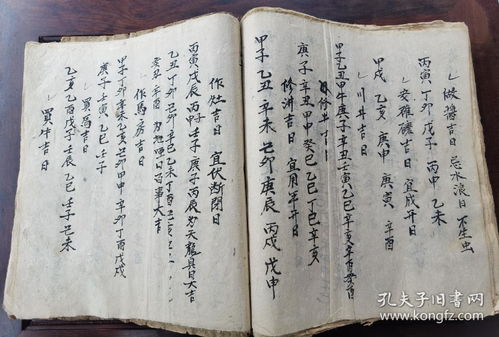 做醬吉日 忌水浪日 不生虫
丙寅 丁卯 戊子 丙申 乙未
安碓磑吉日 宜成开日
甲戌 乙亥 庚申 庚寅 辛酉
川井吉日
甲子 乙丑 甲午 庚子 辛丑 壬寅 乙巳 辛亥 辛酉
吉日
庚子 辛丑 甲申 癸巳 乙巳 丁巳 辛亥
修 吉日 宜用 开日
甲子 乙丑 辛未 己卯 庚辰 丙戌 戊申
作灶吉日 宜伏断閉日
丙寅 戊辰 丙子 壬子 庚子 丙辰 为天聾 日大吉
乙丑 丁卯 己卯 辛巳 乙未 丁酉
癸丑 辛亥 为地啞日 百事大吉
作馬房吉日
甲子 丁卯 辛未 乙亥 己卯 甲申 辛卯 丁酉 戊戌
庚子 壬寅 乙巳 壬子
買馬吉日
乙亥 乙酉 戊子 壬辰 乙巳 壬子 己未
買牛吉日
孔夫子旧书网
www.kongfz.com